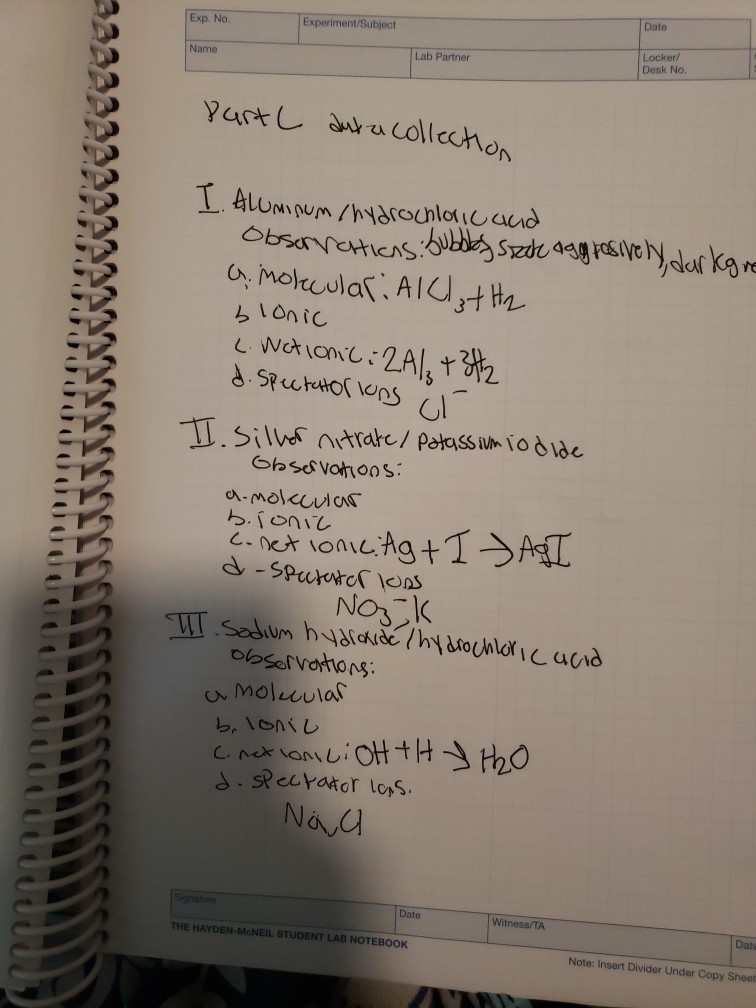 Exp. No. Experiment/Subject Date
Name Lab Partner Locker/
Desk No.
Part C data collection
I. Aluminum/hydrochloric acid
Observations: bubbles, aggressively, dark
a. molecular: AlCl3 + H2
b Ionic
c. Net ionic: 2Al3 + 3H2
d. Spectator ions Cl⁻
II. Silver nitrate/ Potassium iodide
Observations:
a. molecular
b. ionic
c. net ionic: Ag + I → AgI
d - spectator ions
NO3⁻, K
III. Sodium hydroxide/hydrochloric acid
observations:
a molecular
b. Ionic
c. net ionic: OH + H → H2O
d. spectator ions.
Na, Cl
Signature Date Witness/TA Date
THE HAYDEN-McNEIL STUDENT LAB NOTEBOOK
Note: Insert Divider Under Copy Sheet